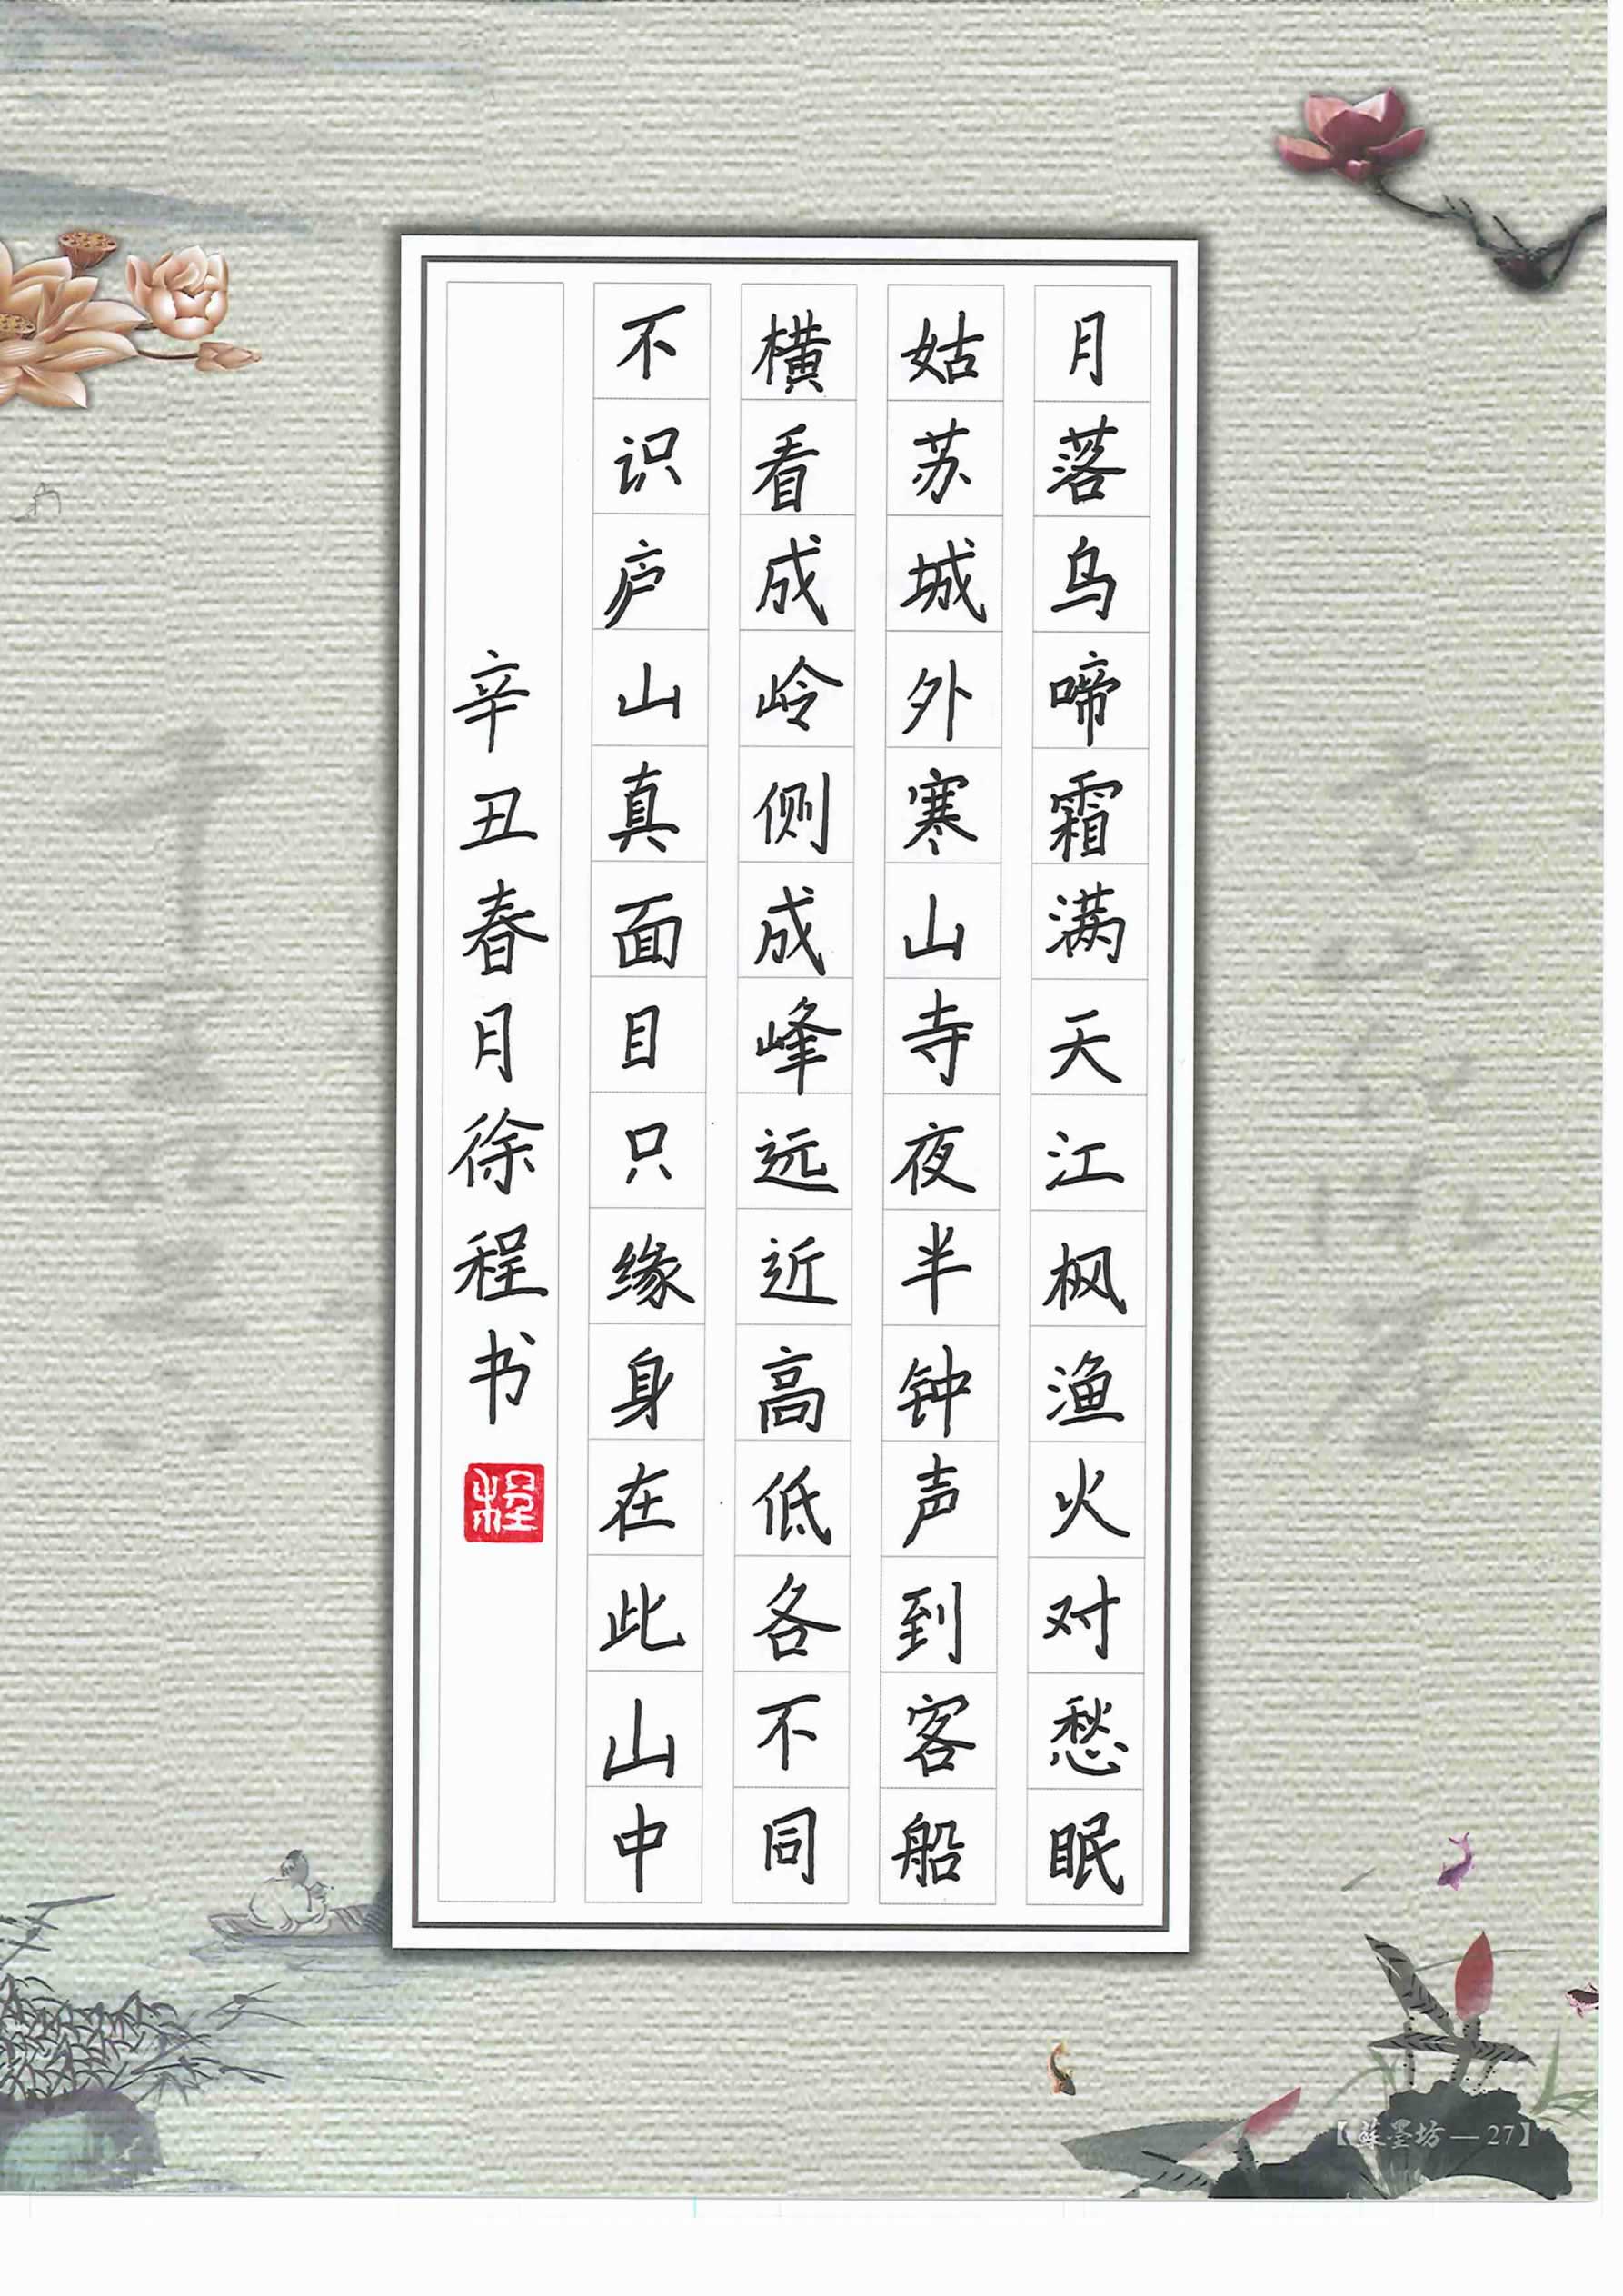 月落乌啼霜满天江枫渔火对愁眠
姑苏城外寒山寺夜半钟声到客船
横看成岭侧成峰远近高低各不同
不识庐山真面目只缘身在此山中
辛丑春月徐程书
程
【蘇墨坊—27】